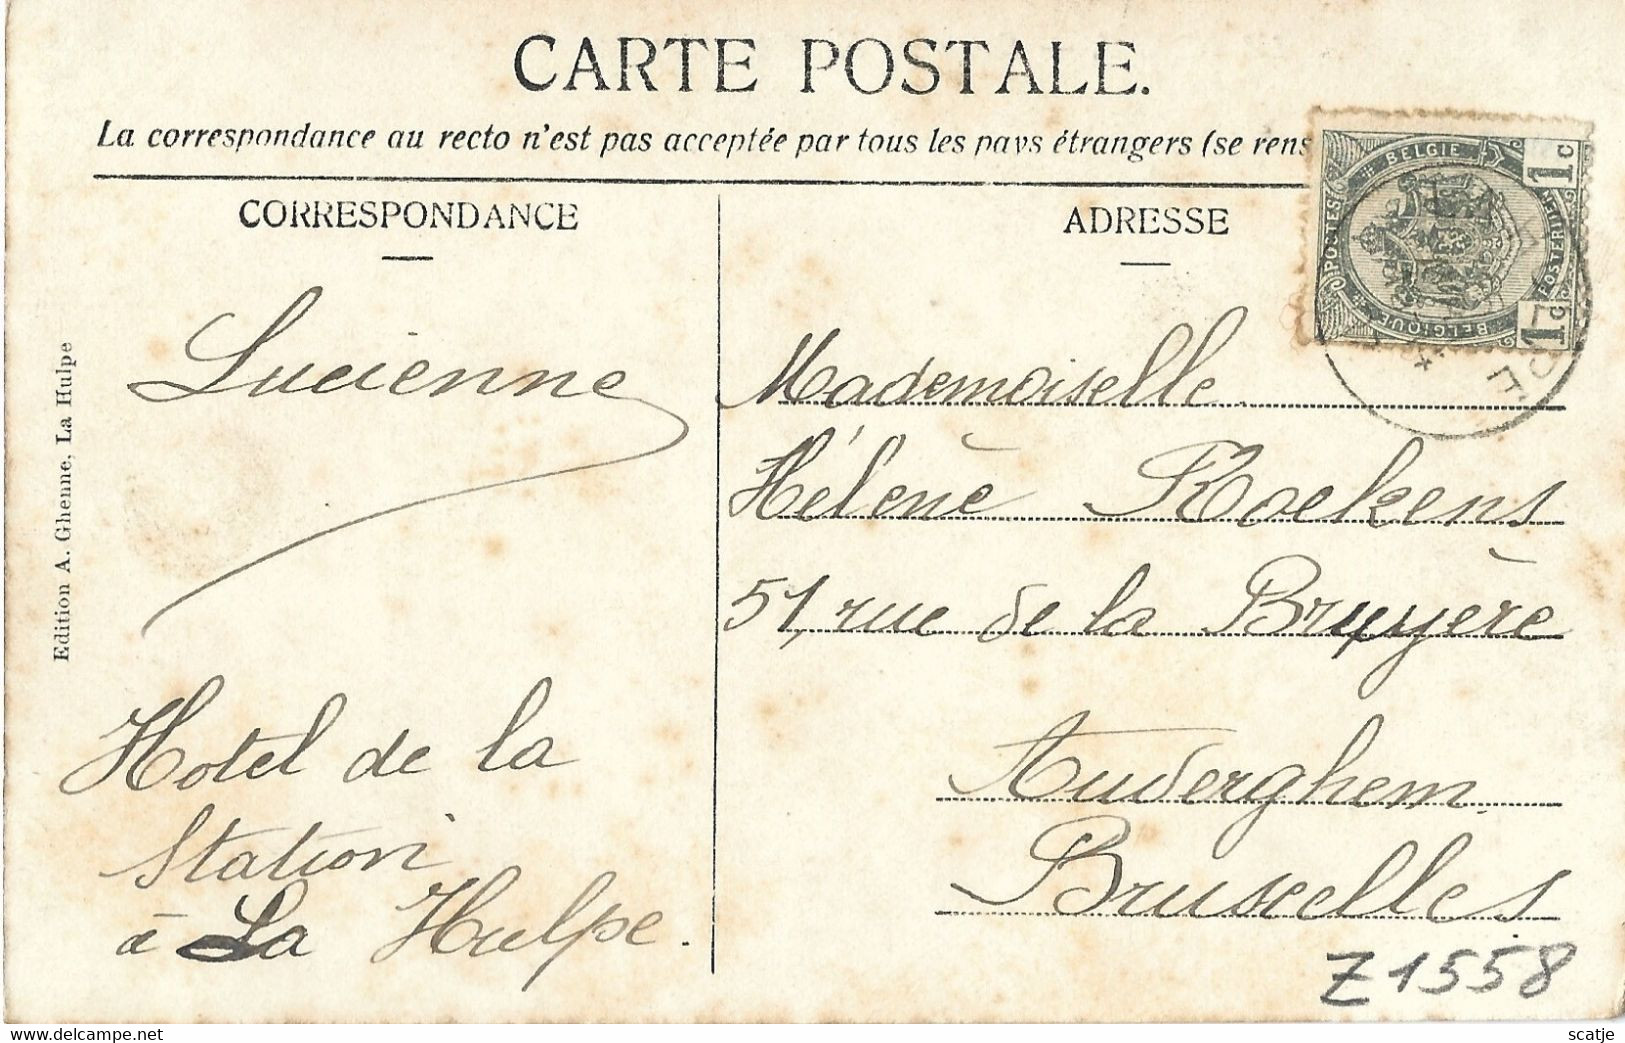 CARTE POSTALE.
La correspondance au recto n'est pas acceptée par tous les pays étrangers (se rens
CORRESPONDANCE
ADRESSE
BELGIE
POSTES
POSTERIJEN
BELGIQUE
1c
1c
Lucienne
Hotel de la
Station
à La Hulpe.
Mademoiselle
Hélène Roekens
51, rue de la Bruyère
Auderghem
Bruxelles
Z1558
Edition A. Ghenne, La Hulpe
www.delcampe.net
scatje